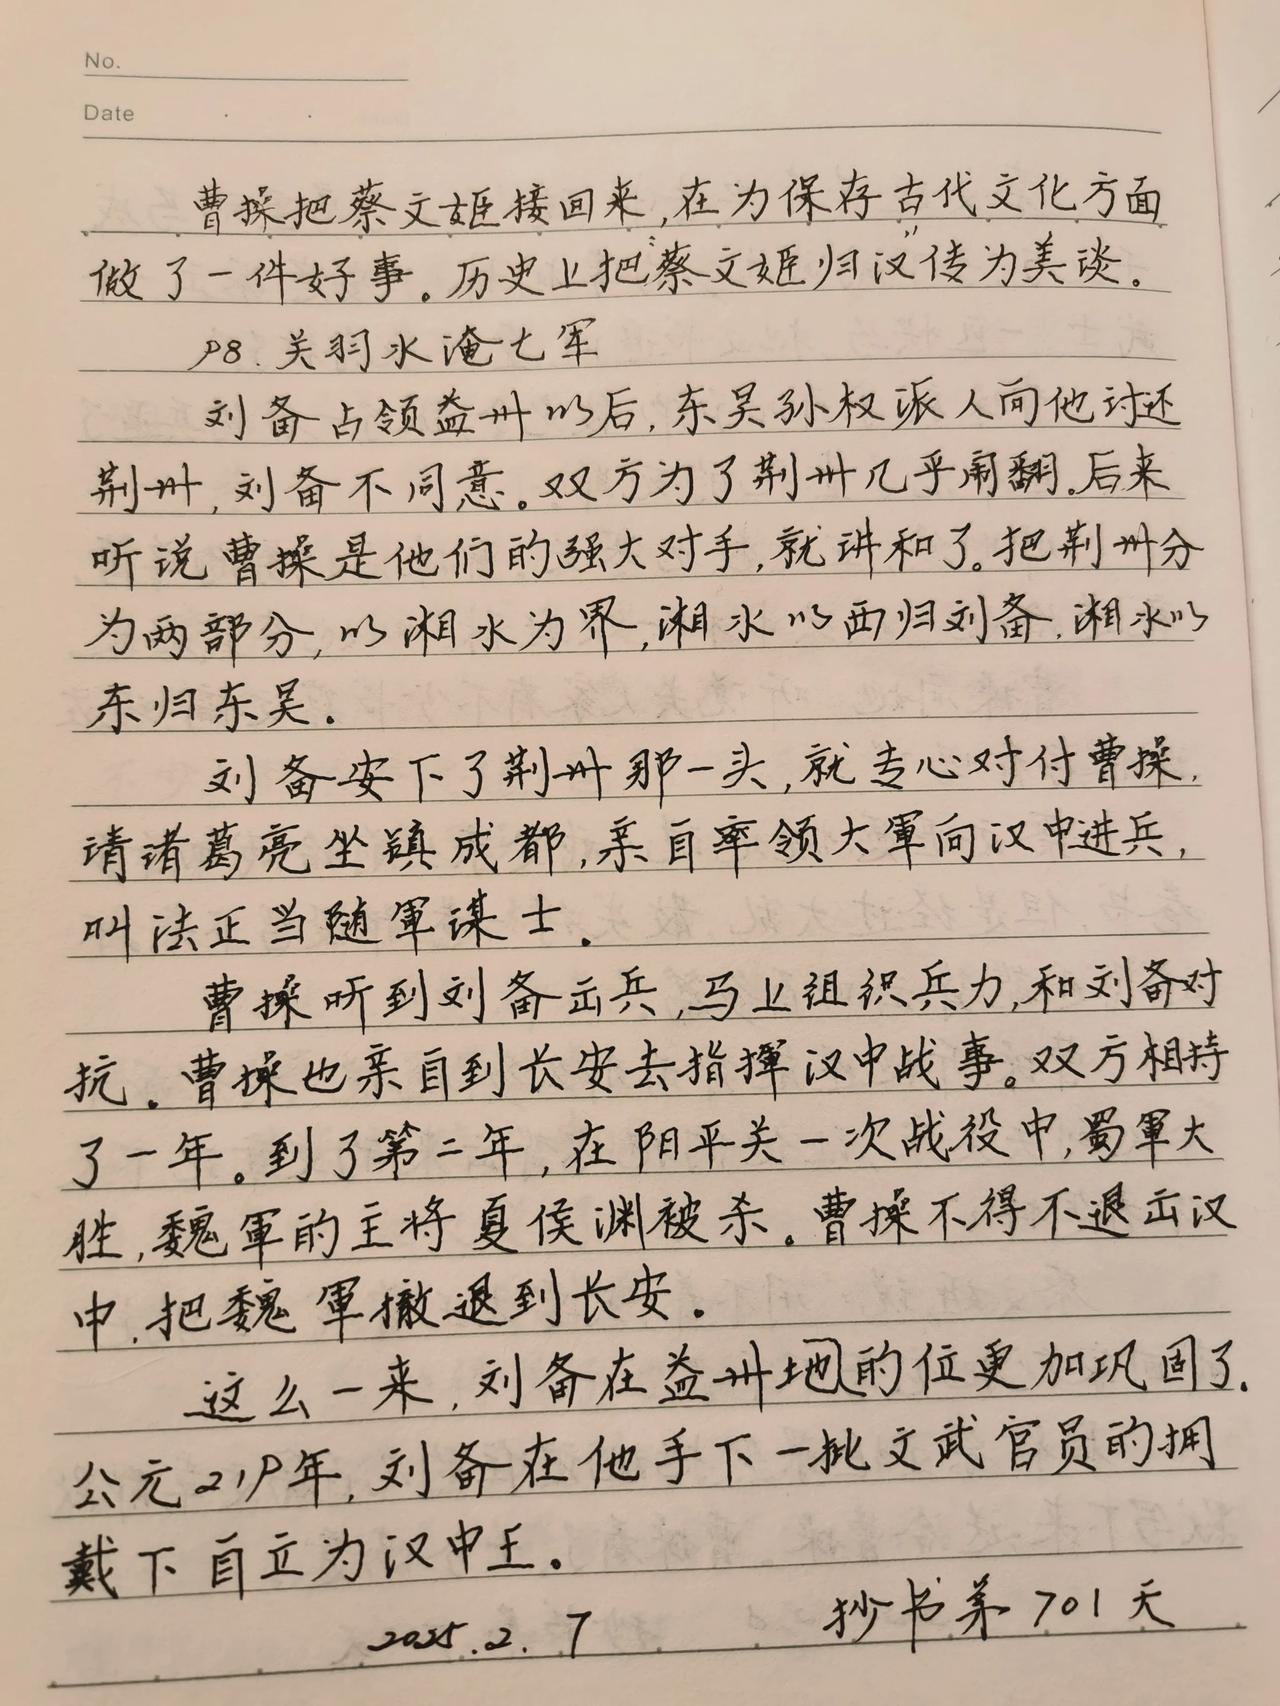 No.
Date
曹操把蔡文姬接回来,在为保存古代文化方面
做了一件好事。历史上把“蔡文姬归汉”传为美谈。
P8.关羽水淹七军
刘备占领益州以后,东吴孙权派人向他讨还
荆州,刘备不同意。双方为了荆州几乎闹翻。后来
听说曹操是他们的强大对手,就讲和了。把荆州分
为两部分,以湘水为界,湘水以西归刘备,湘水以
东归东吴.
刘备安下了荆州那一头,就专心对付曹操,
请诸葛亮坐镇成都,亲自率领大軍向汉中进兵,
叫法正当随軍谋士.
曹操听到刘备出兵,马上组织兵力,和刘备对
抗.曹操也亲自到长安去指揮汉中战事。双方相持
了一年。到了第二年,在阳平关一次战役中,蜀軍大
胜,魏軍的主将夏侯渊被杀。曹操不得不退出汉
中,把魏軍撤退到长安.
这么一来,刘备在益州地的位更加巩固了.
公元219年,刘备在他手下一批文武官员的拥
戴下自立为汉中王.
2025.2.7 抄书第701天